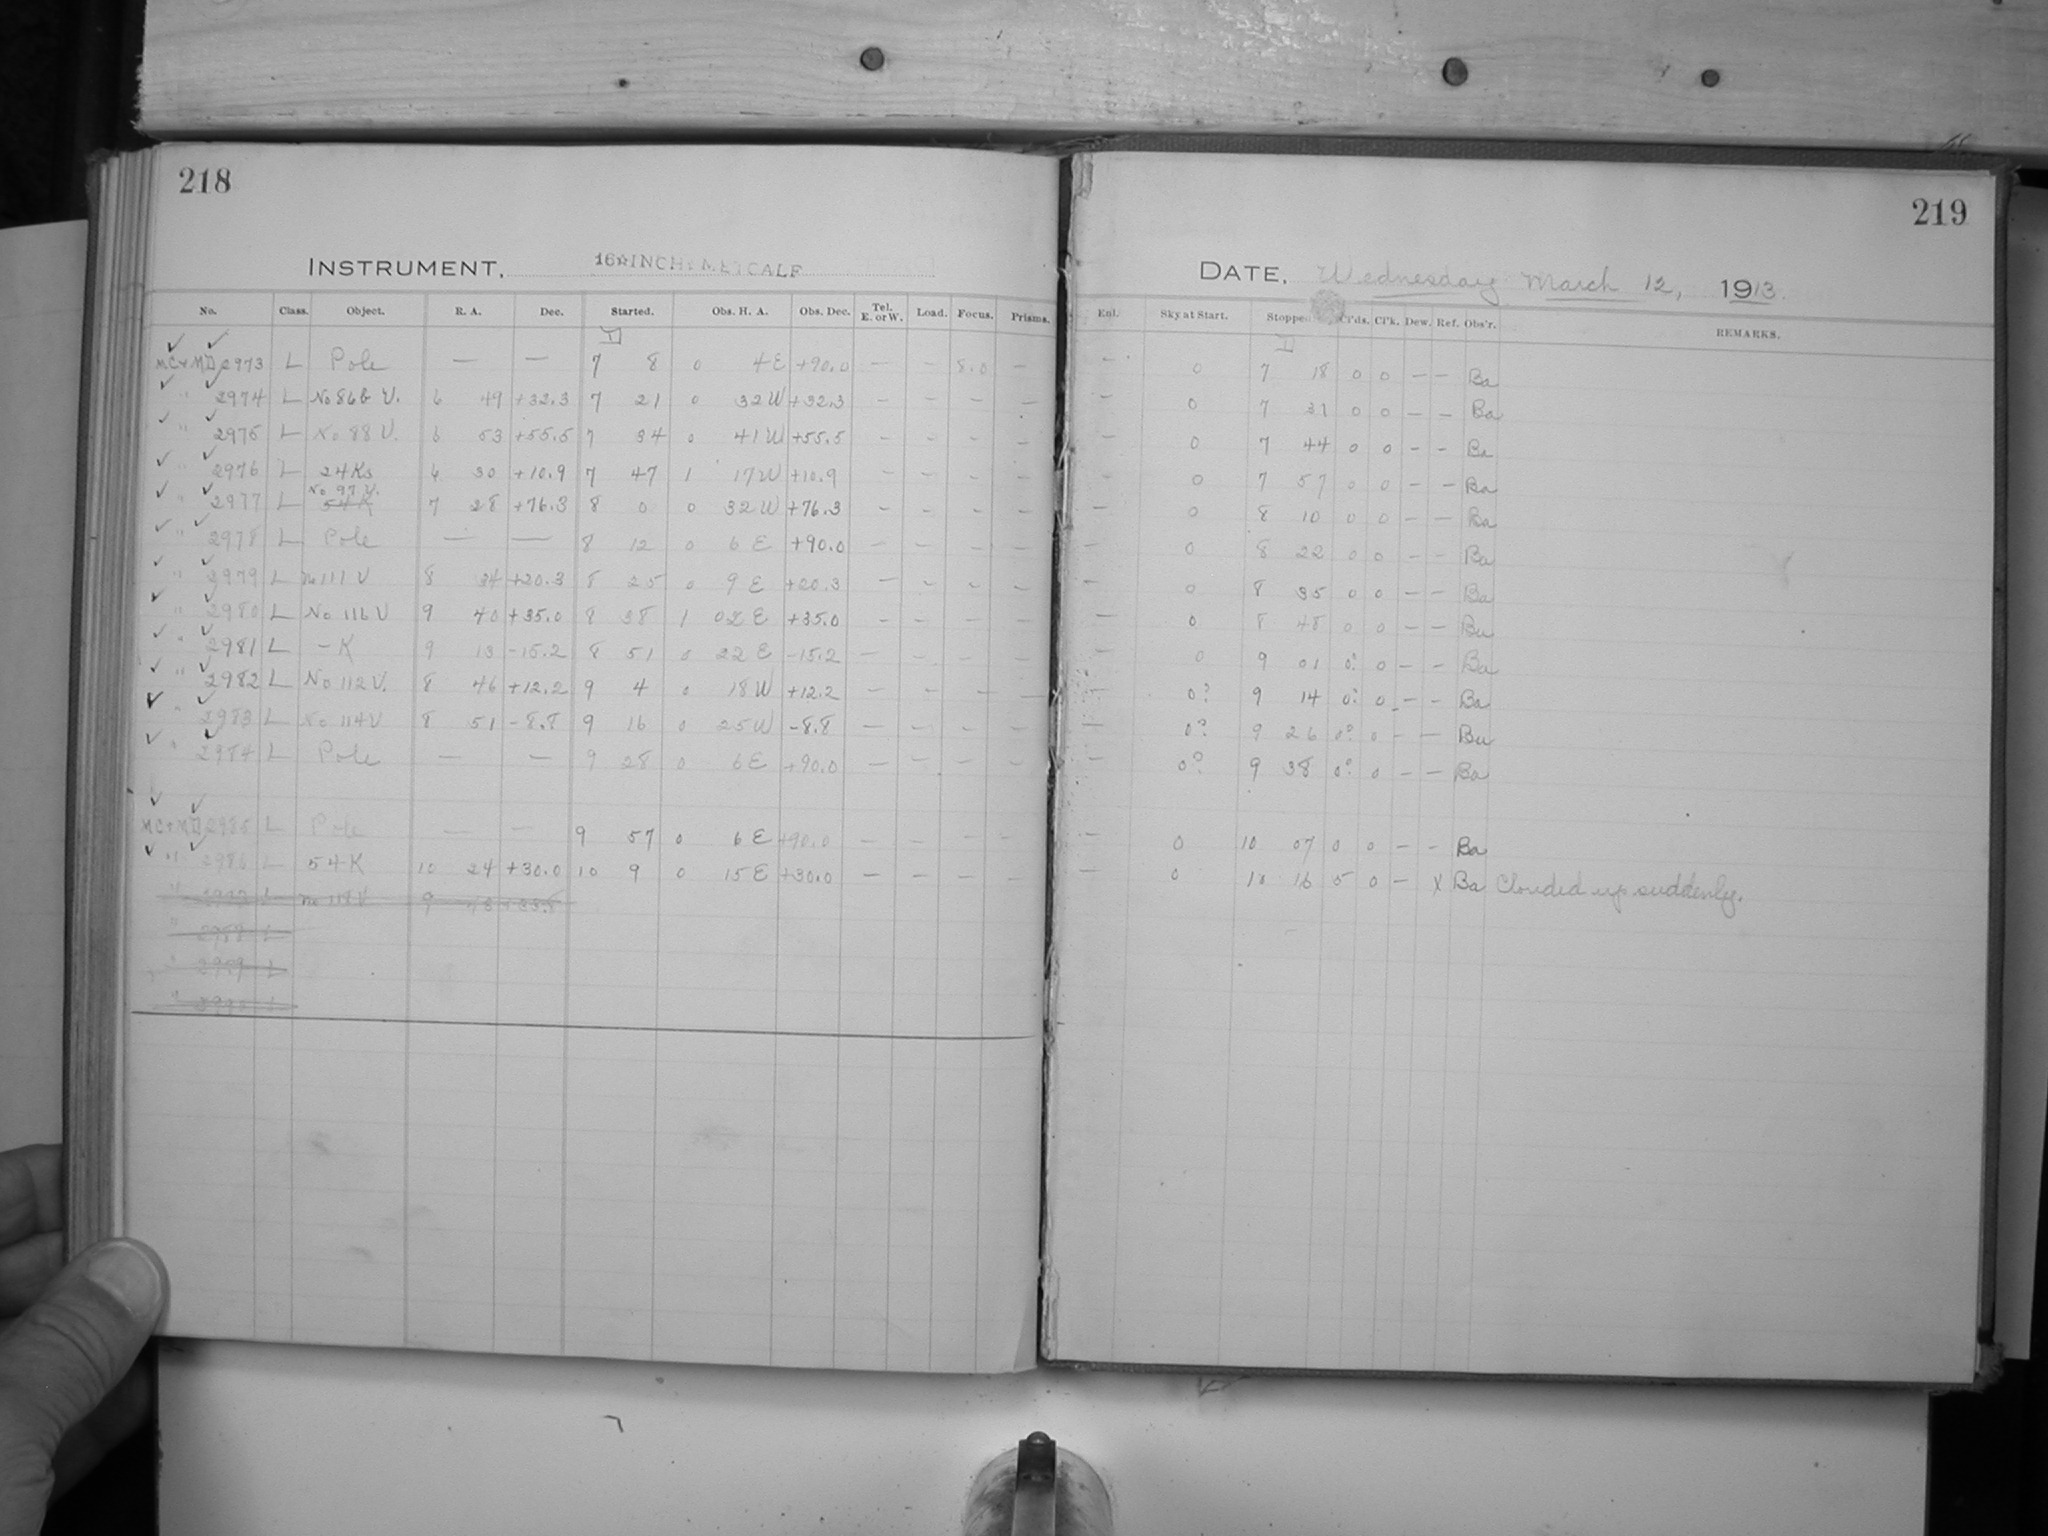 218
INSTRUMENT, 16 INCH METCALF
No. Class. Object. R. A. Dec. Started. Obs. H. A. Obs. Dec. Tel. E. or W. Load. Focus. Prisms.
MC+MD 2973 L Pole — — 7 8 0 4 E +90.0 — — 8.0 —
" 2974 L No 86b V. 6 49 +32.3 7 21 0 32 W +32.3 — — — —
" 2975 L No 88 V. 6 53 +55.5 7 34 0 41 W +55.5 — — — —
" 2976 L 24 Ks 6 30 +10.9 7 47 1 17 W +10.9 — — — —
No 97 V.
" 2977 L 54 K 7 28 +76.3 8 0 0 32 W +76.3 — — — —
" 2978 L Pole — — 8 12 0 6 E +90.0 — — — —
" 2979 L No 111 V 8 34 +20.3 8 25 0 9 E +20.3 — — — —
" 2980 L No 116 V 9 40 +35.0 8 38 1 02 E +35.0 — — — —
" 2981 L – K 9 13 -15.2 8 51 0 22 E -15.2 — — — —
" 2982 L No 112 V. 8 46 +12.2 9 4 0 18 W +12.2 — — — —
" 2983 L No 114 V 8 51 -8.8 9 16 0 25 W -8.8 — — — —
" 2984 L Pole — — 9 28 0 6 E +90.0 — — — —
MC+MD 2985 L Pole — — 9 57 0 6 E +90.0 — — — —
" 2986 L 54 K 10 24 +30.0 10 9 0 15 E +30.0 — — — —
" 2987 L No 9
" 2988 L
" 2989 L
" 2990 L
219
DATE, Wednesday March 12, 1913.
Enl. Sky at Start. Stopped Cl'ds. Cl'k. Dew. Ref. Obs'r. REMARKS.
— 0 7 18 0 0 — — Ba
— 0 7 31 0 0 — — Ba
— 0 7 44 0 0 — — Ba
— 0 7 57 0 0 — — Ba
— 0 8 10 0 0 — — Ba
— 0 8 22 0 0 — — Ba
— 0 8 35 0 0 — — Ba
— 0 8 48 0 0 — — Ba
— 0 9 01 0? 0 — — Ba
— 0? 9 14 0? 0 — — Ba
— 0? 9 26 0? 0 — — Ba
— 0? 9 38 0? 0 — — Ba
— 0 10 07 0 0 — — Ba
— 0 10 16 5 0 — X Ba Clouded up suddenly.